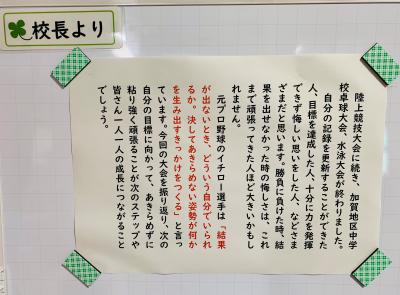 校長より
陸上競技大会に続き、加賀地区中学
校卓球大会、水泳大会が終わりました。
自分の記録を更新することができた
人、目標を達成した人、十分に力を発揮
できず悔しい思いをした人、などさま
ざまだと思います。勝負に負けた時、結
果を出せなかった時の悔しさは、これ
まで頑張ってきた人ほど大きいかもし
れません。
元プロ野球のイチロー選手は「結果
が出ないとき、どういう自分でいられ
るか。決してあきらめない姿勢が何か
を生み出すきっかけをつくる」と言っ
ています。今回の大会を振り返り、次の
自分の目標に向かって、あきらめずに
粘り強く頑張ることが次のステップや
皆さん一人一人の成長につながること
でしょう。